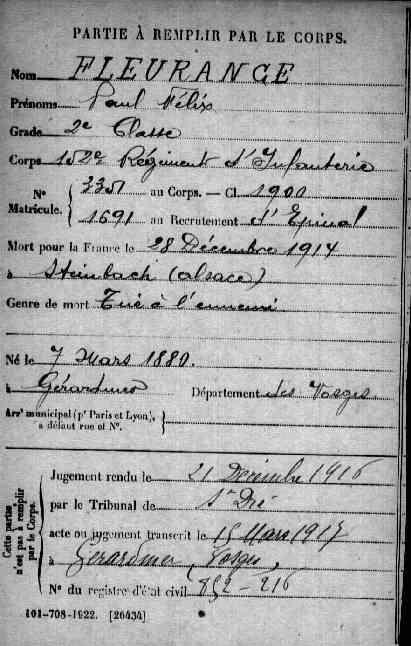 PARTIE À REMPLIR PAR LE CORPS.
Nom FLEURANCE
Prénoms Paul Félix
Grade 2e Classe
Corps 152e Régiment d'Infanterie
N° Matricule. { 3351 au Corps. — Cl. 1900
1691 au Recrutement d'Epinal
Mort pour la France le 28 Décembre 1914
à Steinbach (alsace)
Genre de mort Tué à l'ennemi
Né le 7 Mars 1880.
à Gérardmer Département des Vosges
Arrt municipal (pr Paris et Lyon), à défaut rue et N°. }
Cette partie n'est pas à remplir par le Corps.
Jugement rendu le 21 Décembre 1916
par le Tribunal de St Dié
acte ou jugement transcrit le 15 Mars 1917
à Gerardmer, Vosges,
N° du registre d'état civil 852-216
101-708-1922. [26434]